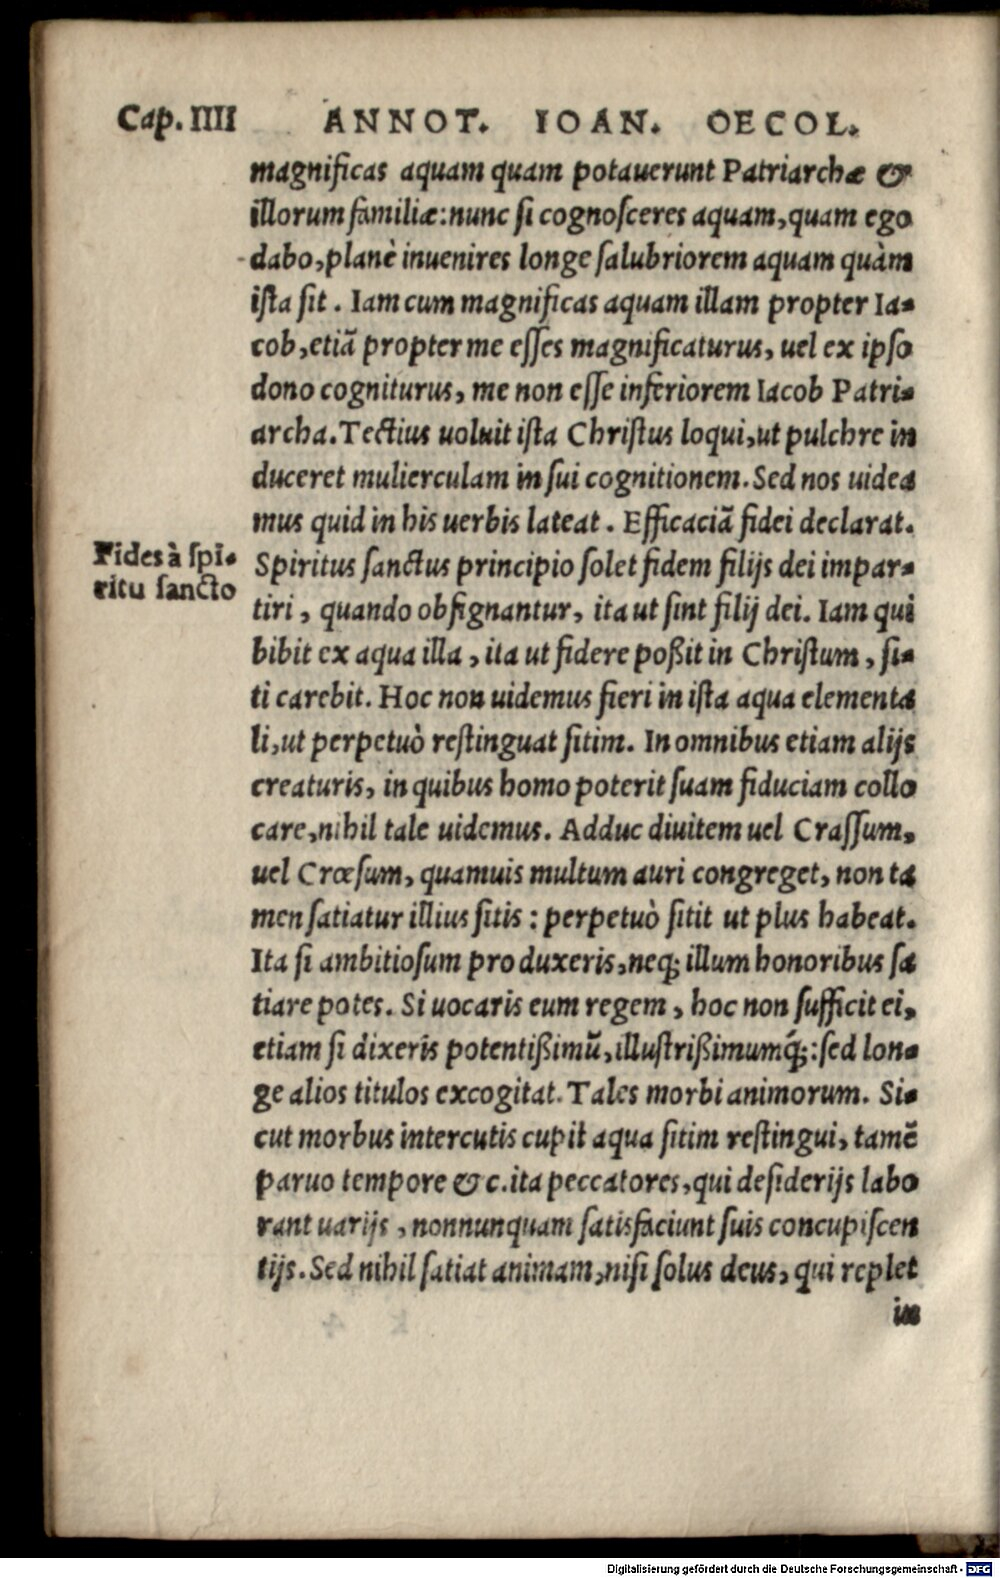 Cap. IIII ANNOT. IOAN. OECOL.
magnificas aquam quam potauerunt Patriarchæ &
illorum familiæ: nunc si cognosceres aquam, quam ego
dabo, planè inuenires longe salubriorem aquam quàm
ista sit. Iam cum magnificas aquam illam propter Ia-
cob, etiã propter me esses magnificaturus, uel ex ipso
dono cogniturus, me non esse inferiorem Iacob Patri-
archa. Tectius uoluit ista Christus loqui, ut pulchre in
duceret mulierculam in sui cognitionem. Sed nos uidea
mus quid in his uerbis lateat. Efficaciã fidei declarat.
Fides à spi-
ritu sancto
Spiritus sanctus principio solet fidem filijs dei impar-
tiri, quando obsignantur, ita ut sint filij dei. Iam qui
bibit ex aqua illa, ita ut fidere poßit in Christum, si-
ti carebit. Hoc non uidemus fieri in ista aqua elementa
li, ut perpetuò restinguat sitim. In omnibus etiam alijs
creaturis, in quibus homo poterit suam fiduciam collo
care, nihil tale uidemus. Adduc diuitem uel Crassum,
uel Crœsum, quamuis multum auri congreget, non ta
men satiatur illius sitis: perpetuò sitit ut plus habeat.
Ita si ambitiosum produxeris, neq; illum honoribus sa
tiare potes. Si uocaris eum regem, hoc non sufficit ei,
etiam si dixeris potentißimũ, illustrißimumq́;: sed lon-
ge alios titulos excogitat. Tales morbi animorum. Si-
cut morbus intercutis cupit aqua sitim restingui, tamẽ
paruo tempore &c. ita peccatores, qui desiderijs labo
rant uarijs, nonnunquam satisfaciunt suis concupiscen
tijs. Sed nihil satiat animam, nisi solus deus, qui replet
in
Digitalisierung gefördert durch die Deutsche Forschungsgemeinschaft - DFG